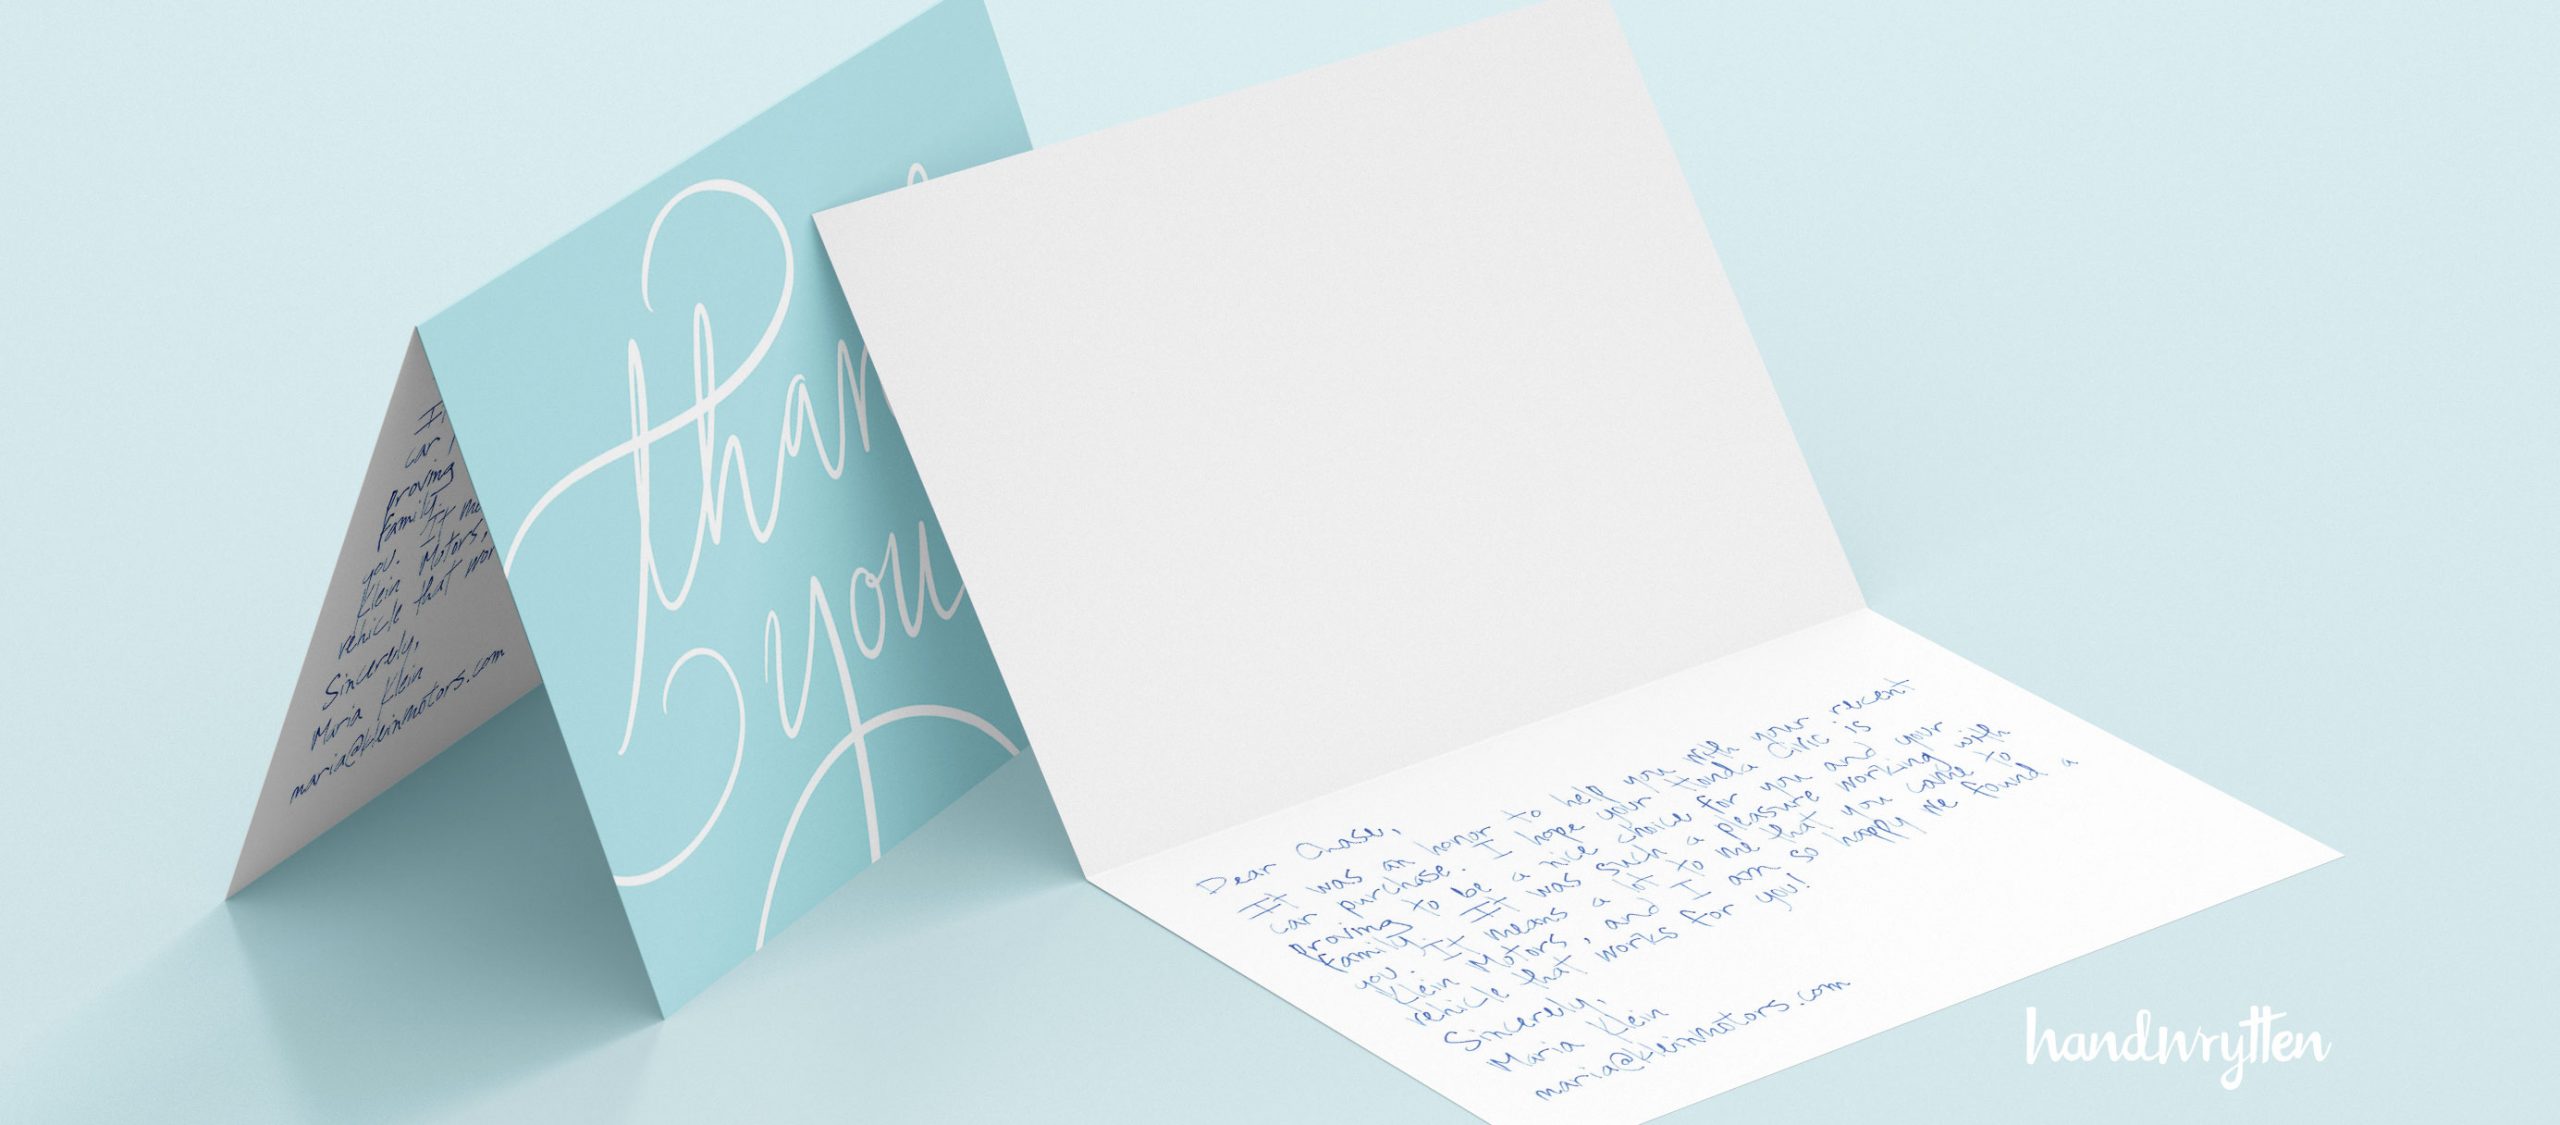 It
car
proving
family.
you. It me
Klein Motors,
vehicle that wor
Sincerely,
Maria Klein
maria@kleinmotors.com
than
you
Dear Chase,
It was an honor to help you with your recent
car purchase. I hope your Honda Civic is
proving to be a nice choice for you and your
family. It was such a pleasure working with
you. It means a lot to me that you came to
Klein Motors, and I am so happy we found a
vehicle that works for you!
Sincerely,
Maria Klein
maria@kleinmotors.com
handwrytten